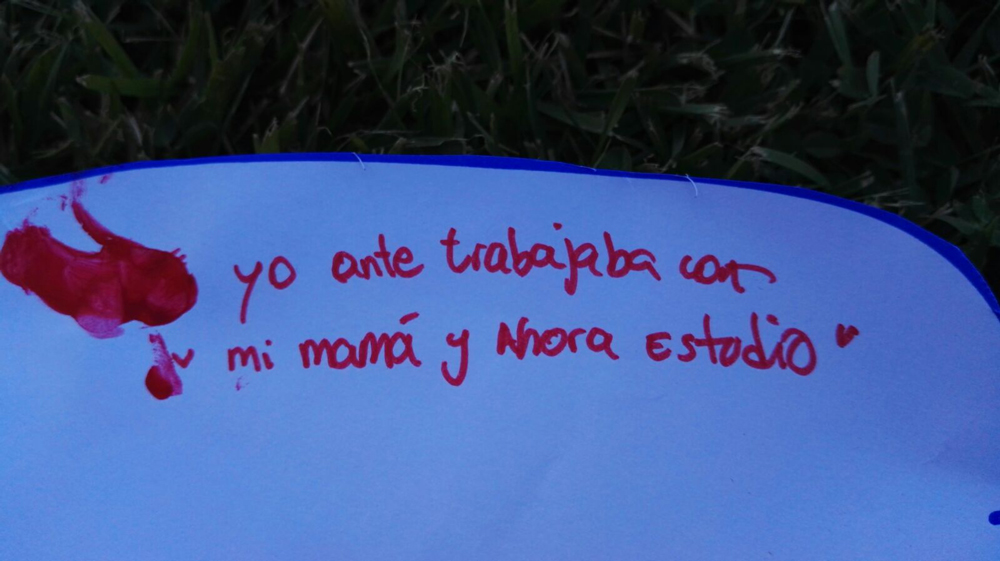 yo ante trabajaba con
mi mamá y Ahora Estudio"